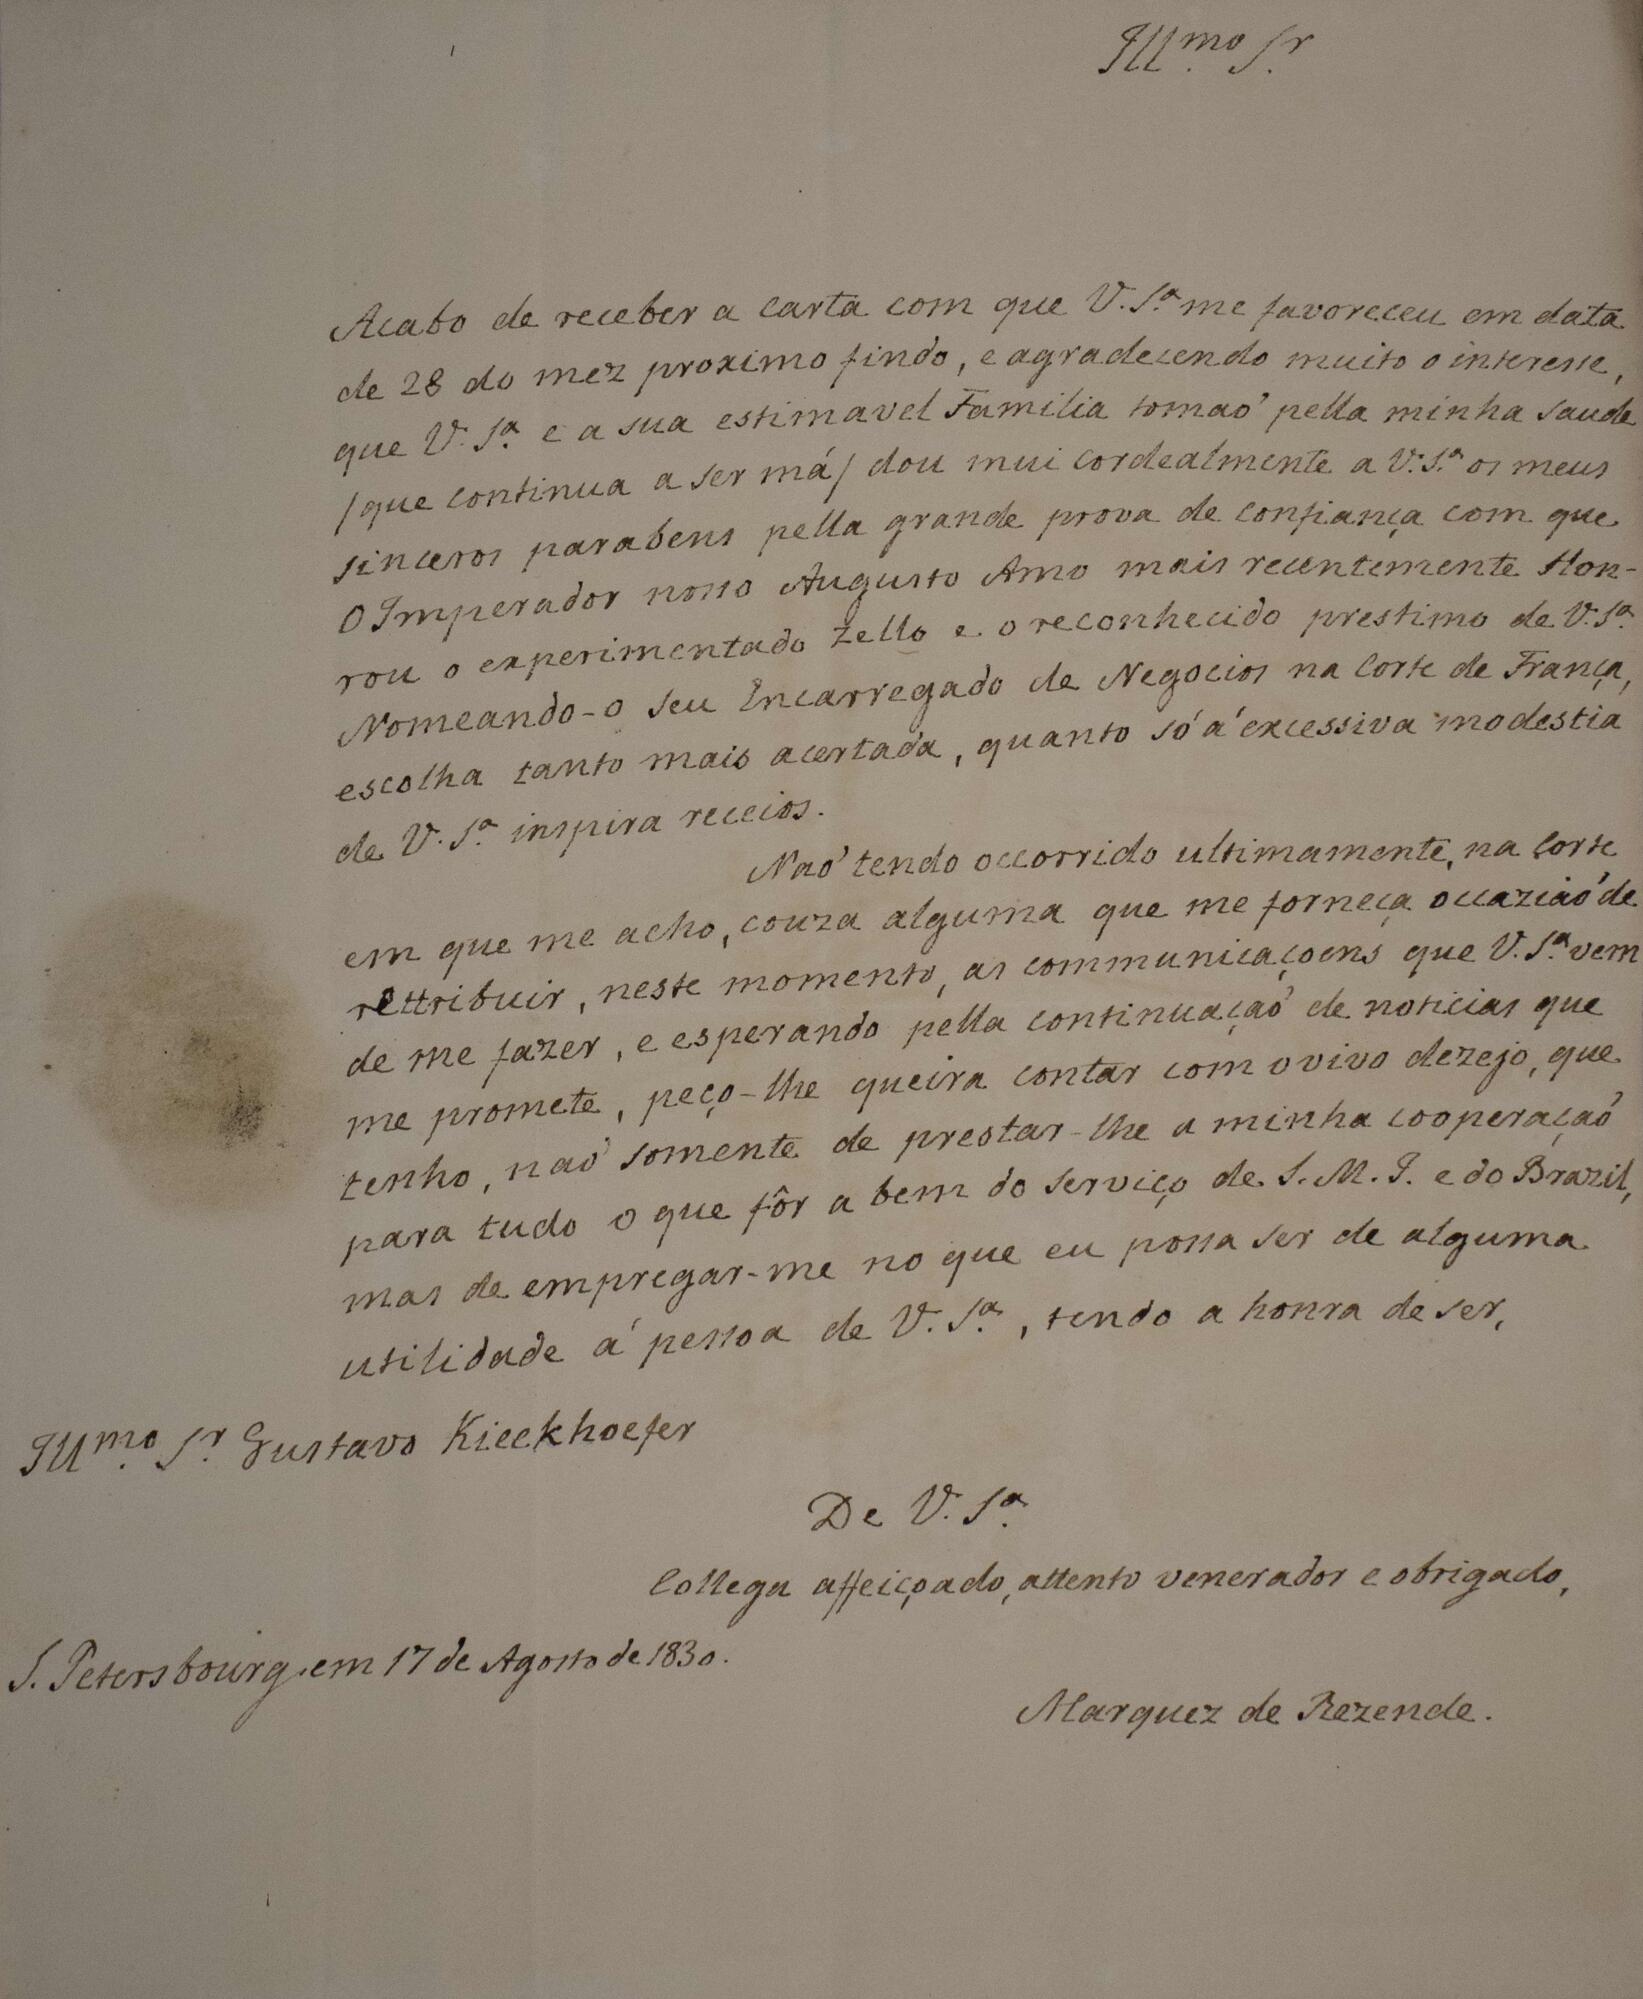 Illmo. Sr.
Acabo de receber a carta com que V. Sª. me favoreceu em data
de 28 do mez proximo findo, e agradecendo muito o interesse,
que V. Sª. e a sua estimavel Familia tomaõ pella minha saude
/que continua a ser má/ dou mui cordealmente a V. Sª. os meus
sinceros parabens pella grande prova de confiança com que
O Imperador nosso Augusto Amo mais recentemente Hon-
rou o experimentado zello e o reconhecido prestimo de V. Sª.
Nomeando-o seu Encarregado de Negocios na Corte de França,
escolha tanto mais acertada, quanto só á excessiva modestia
de V. Sª. inspira receios.
Naõ tendo occorrido ultimamente, na Corte
em que me acho, couza alguma que me forneça occaziaõ de
rettribuir, neste momento, as communicaçoens que V. Sª. vem
de me fazer, e esperando pella continuaçaõ de noticias que
me promete, peço-lhe queira contar com o vivo dezejo, que
tenho, naõ somente de prestar-lhe a minha cooperaçaõ
para tudo o que fôr a bem do serviço de S. M. I. e do Brazil,
mas de empregar-me no que eu possa ser de alguma
utilidade á pessoa de V. Sª., tendo a honra de ser,
Illmo. Sr. Gustavo Kieckhoefer
De V. Sª.
Collega affeiçoado, attento venerador e obrigado,
S. Petersbourg em 17 de Agosto de 1830.
Marquez de Rezende.